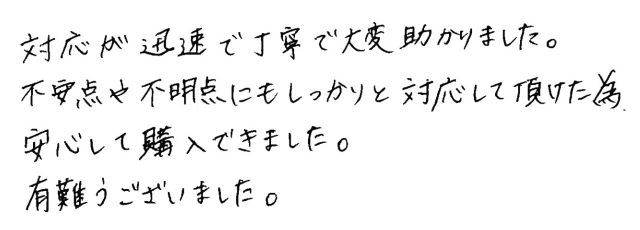 対応が迅速で丁寧で大変助かりました。
不安点や不明点にもしっかりと対応して頂けた為、
安心して購入できました。
有難うございました。